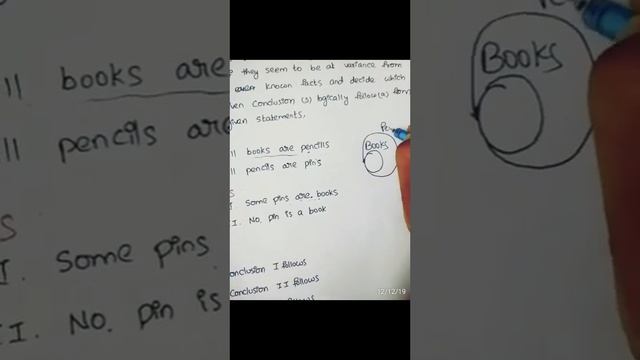 they seem to be at variance from
known facts and decide which
Conclusion (s) logically follow(s) from
given statements,
ll books are pencils
ll pencils are pins
I Some pins are books
I. No. pin is a book
Conclusion I follows
Conclusion II follows
Books
12/12/19
ll books are
ll pencils are
S
I. Some pins
I. No. pin is
Books